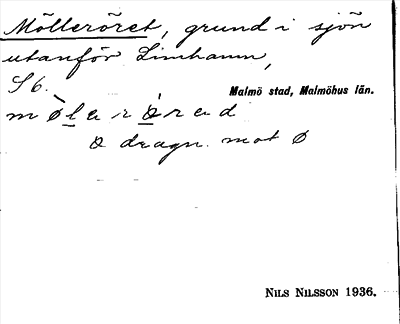 Mölleröret, grund i sjön
utanför Limhamn,
S 6.
Malmö stad, Malmöhus län.
mø̀lerörəd
ɷ dragn. mot ø
NILS NILSSON 1936.